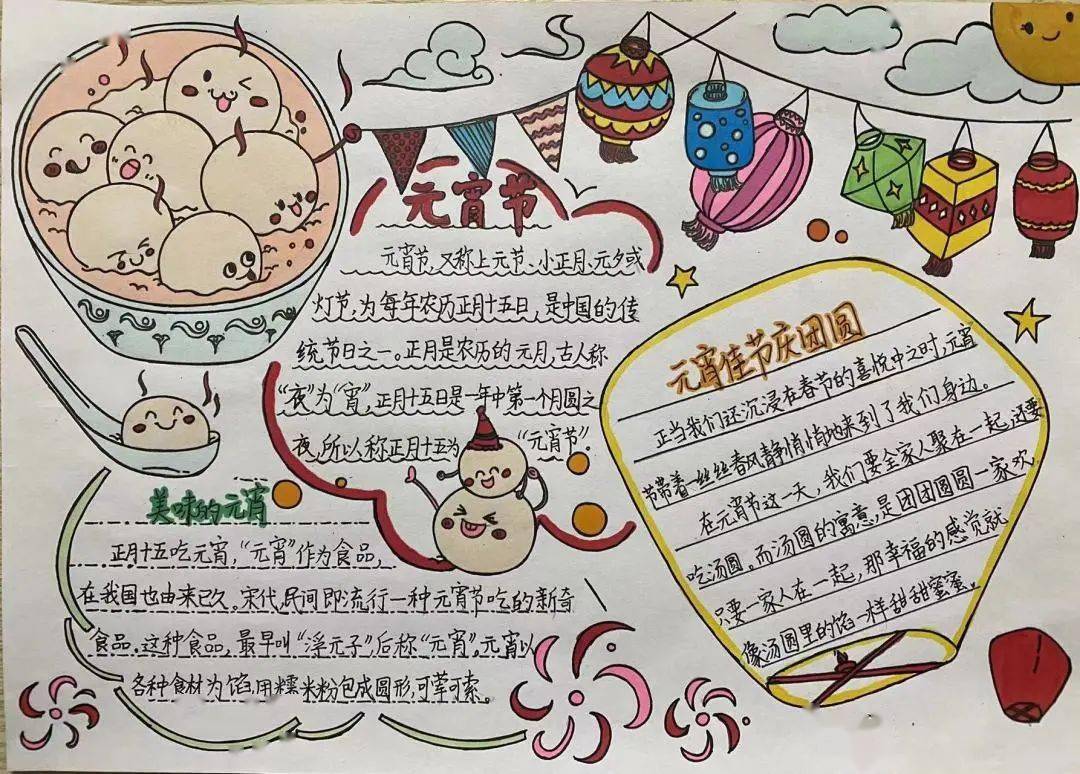 元宵节
元宵节,又称上元节、小正月、元夕或
灯节,为每年农历正月十五日,是中国的传
统节日之一。正月是农历的元月,古人称
“夜”为“宵”,正月十五日是一年中第一个月圆之
夜,所以称正月十五为“元宵节”.
美味的元宵
正月十五吃元宵,“元宵”作为食品,
在我国也由来已久。宋代,民间即流行一种元宵节吃的新奇
食品.这种食品,最早叫“浮元子”,后称“元宵”,元宵以
各种食材为馅,用糯米粉包成圆形,可荤可素。
元宵佳节庆团圆
正当我们还沉浸在春节的喜悦中之时,元宵
节带着一丝丝春风静悄悄地来到了我们身边。
在元宵节这一天,我们要全家人聚在一起,还要
吃汤圆。而汤圆的寓意,是团团圆圆一家欢.
只要一家人在一起,那幸福的感觉就
像汤圆里的馅一样甜甜蜜蜜。